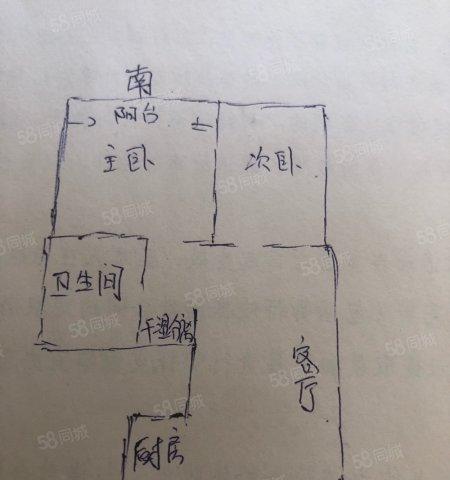 南
阳台
主卧
次卧
卫生间
干湿分离
客厅
厨房
58同城
58同城
58同城
58同城
58同城
58同城
58同城
58同城
58同城
58同城